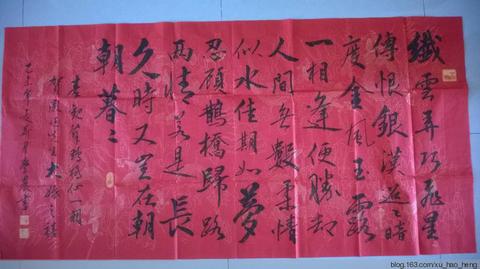 纖雲弄巧飛星
傳恨銀漢迢々暗
度金風玉露
一相逢便勝却
人間無數柔情
似水佳期如夢
忍顧鵲橋歸路
兩情若是長
久時又豈在朝
朝暮々
秦觀詞鵲橋仙一闋
之禧
乙未年
書
blog.163.com/xu_hao_heng